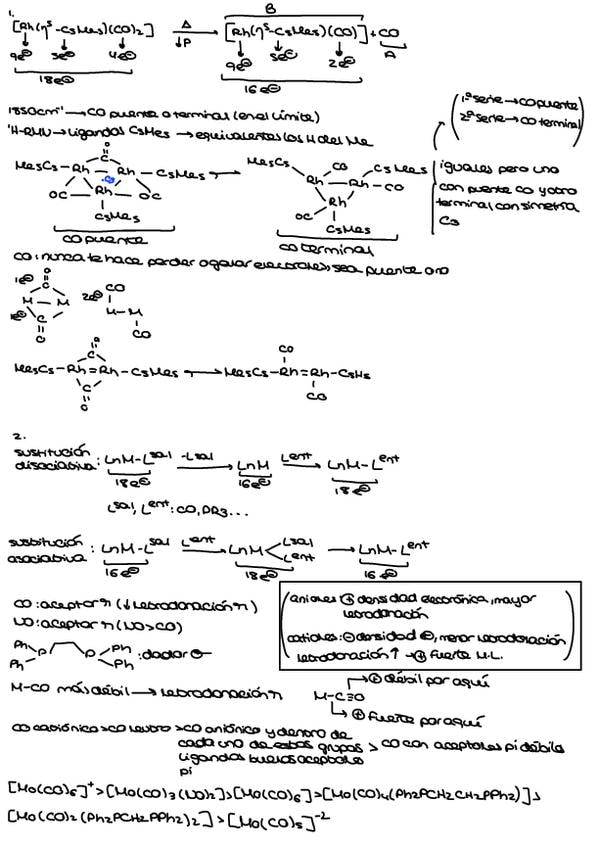 1.
[Rh(η⁵-C5Me5)(CO)2] Δ ↓P [Rh(η⁵-C5Me5)(CO)] + CO
B
9e⊖ 5e⊖ 4e⊖ 9e⊖ 5e⊖ 2e⊖ A
18e⊖ 16e⊖
1850cm⁻¹ → CO puente o terminal (en el límite)
(1ª serie → CO puente
2ª serie → CO terminal)
¹H-RMN → ligandos C5Me5 → equivalentes los H del Me
Me5C5-Rh - Rh - C5Me5 → Me5C5 Rh CO C5Me5
C O CO Rh - CO
OC Rh OC OC Rh
C5Me5 C5Me5
iguales pero uno
con puente CO y otro
terminal con simetría
C3
CO puente CO terminal
CO: nunca te hace perder o ganar electrones, sea puente o no
1e⊖ M - M 1e⊖ C O
2e⊖ CO M-M CO
Me5C5-Rh=Rh-C5Me5 → Me5C5-Rh=Rh-C5H5
CO CO
2.
sustitución
disociativa: LnM-Lsal -Lsal → LnM Lent → LnM-Lent
18e⊖ 16e⊖ 18e⊖
Lsal, Lent: CO, PR3...
sustitución
asociativa: LnM-Lsal Lent → LnM Lsal Lent → LnM-Lent
16e⊖ 18e⊖ 16e⊖
CO: aceptor π (↓ retrodonación π)
NO: aceptor π (NO>CO)
Ph Ph P P Ph Ph : dador σ
(aniones ⊕ densidad electrónica, mayor
retrodonación
cationes: ⊖ densidad ⊖, menor retrodonación
retrodonación ↑ → ⊕ fuerte M-L)
M-CO más débil → retrodonación π
M-C≡O → ⊕ débil por aquí
→ ⊕ fuerte por aquí
CO catiónico > CO neutro > CO aniónico y dentro de
cada uno de estos grupos > CO con aceptores pi débiles
ligandos buenos aceptores
pi
[Mo(CO)6]⁺ > [Mo(CO)3(NO)2] > [Mo(CO)6] > [Mo(CO)4(Ph2PCH2CH2PPh2)] >
[Mo(CO)2(Ph2PCH2PPh2)2] > [Mo(CO)5]⁻²